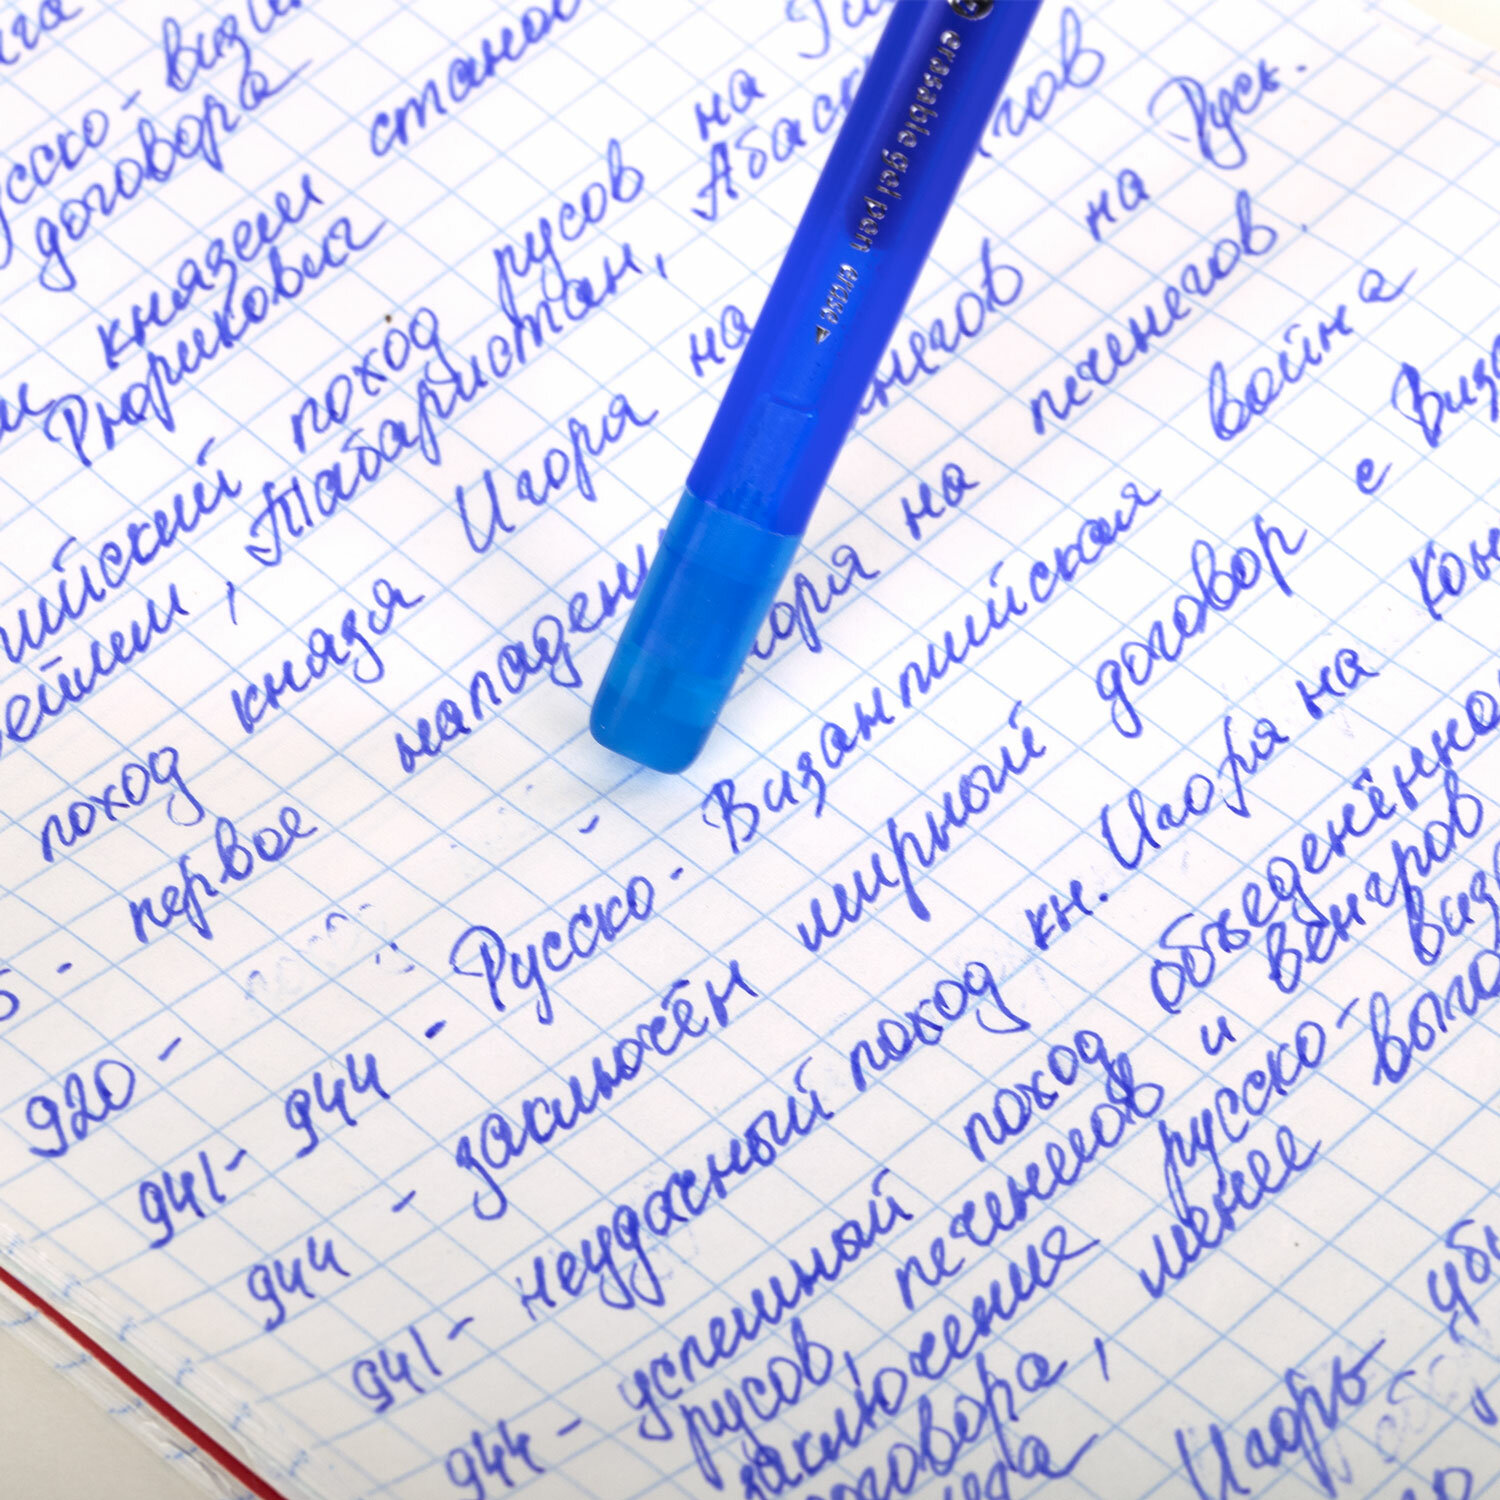 договора
князем станов
Рюрикович
поход русов на
Табаристан, Абаск
поход князя Игоря на
первое нападени на Русь.
920 - на печенегов.
941 - 944 - Русско - Византийская война
944 - заключён мирный договор с Виза
941 - неудачный поход кн. Игоря на Кон
944 - успешный поход объеденённо
русов, печенегов и венгров
заключение русско - виз
договора, менее выго
Игорь уби
erasable gel pen erase